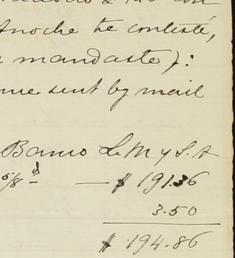 Anoche te contesté,
mandaste):
me sent by mail
Banco L M y S. A
5/8 d — $ 191.36
3.50
$ 194.86